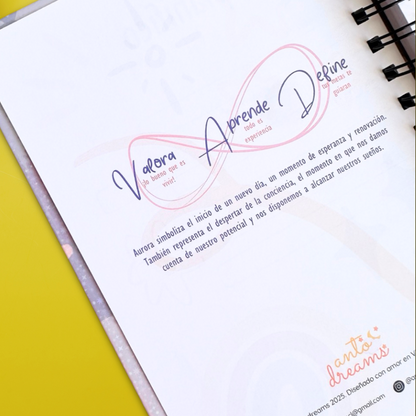 Valora
lo bueno que es
vivir!
Aprende
todo es
experiencia
Define
tus metas te
guiaran
Aurora simboliza el inicio de un nuevo día, un momento de esperanza y renovación.
También representa el despertar de la conciencia, el momento en que nos damos
cuenta de nuestro potencial y nos disponemos a alcanzar nuestros sueños.
anto
dreams
dreams 2025. Diseñado con amor en V
@gmail.com